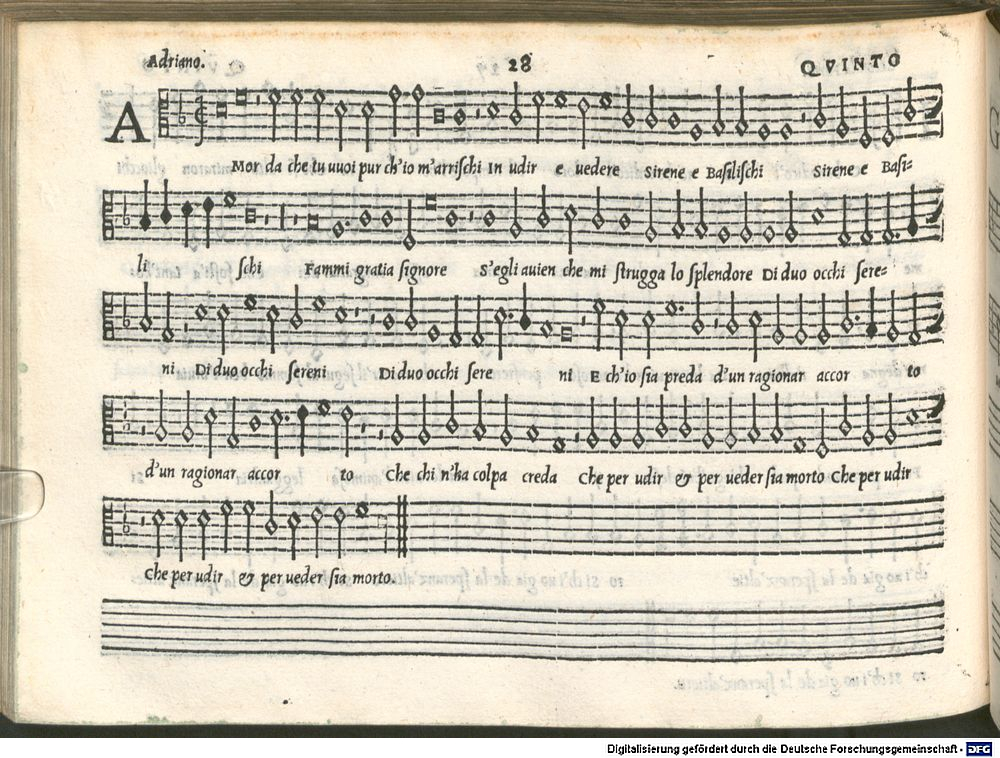 Adriano. 28 QVINTO
A Mor da che tu vuoi pur ch'io m'arriſchi In udir e uedere Sirene e Baſiliſchi Sirene e Baſi-
li ſchi Fammi gratia ſignore S'egli auien che mi ſtrugga lo ſplendore Di duo occhi ſere-
ni Di duo occhi ſereni Di duo occhi ſere ni E ch'io ſia preda d'un ragionar accor to
d'un ragionar accor to Che chi n'ha colpa creda Che per udir & per ueder ſia morto Che per udir
Che per udir & per ueder ſia morto.
Digitalisierung gefördert durch die Deutsche Forschungsgemeinschaft - DFG